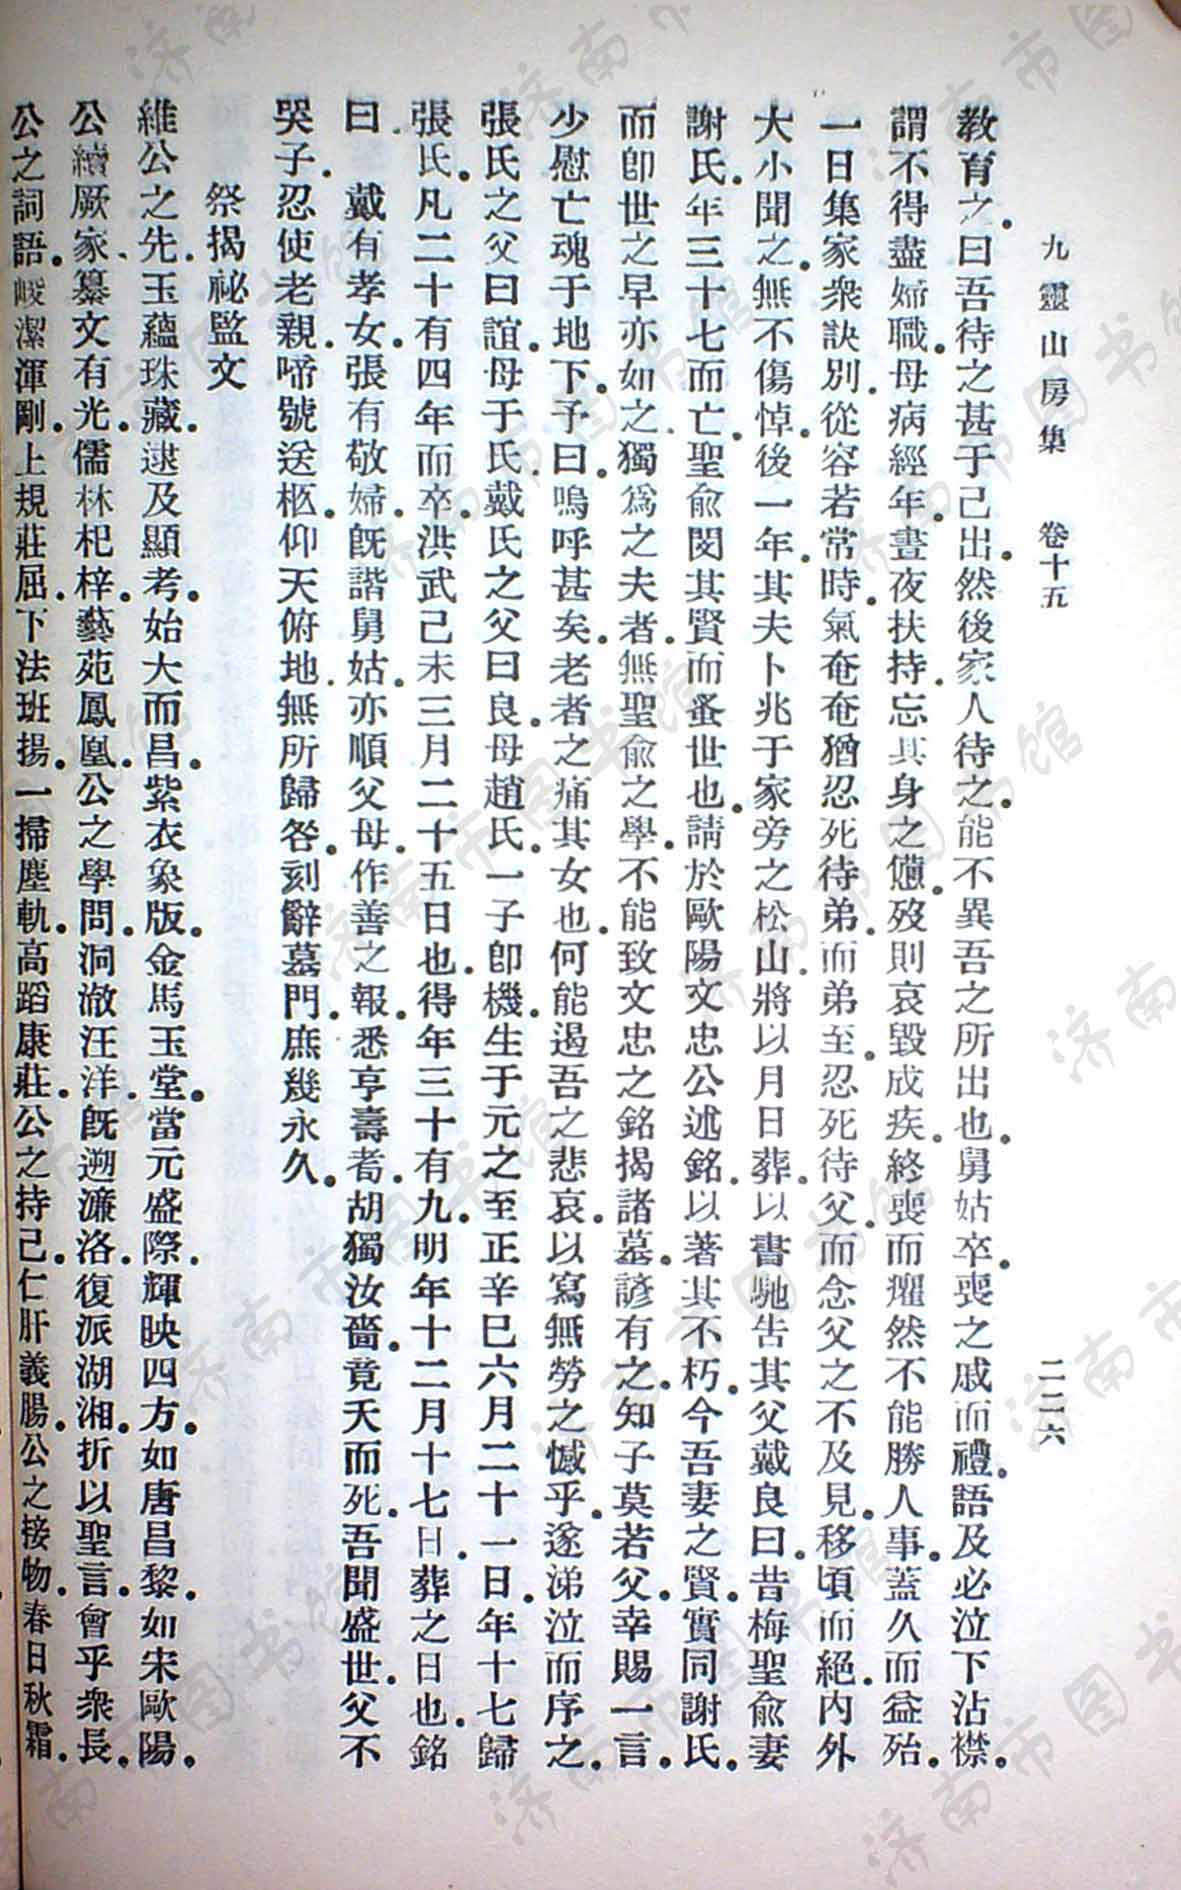 九靈山房集　卷十五　二二六
教育之。曰吾待之甚于己出。然後家人待之。能不異吾之所出也。舅姑卒。喪之戚而禮。語及必泣下沾襟。
謂不得盡婦職。母病經年。晝夜扶持。忘其身之憊。歿則哀毀成疾。終喪而癯然不能勝人事。蓋久而益殆。
一日集家衆訣別。從容若常時。氣奄奄猶忍死待弟。而弟至。忍死待父。而念父之不及見。移頃而絕。內外
大小聞之。無不傷悼。後一年。其夫卜兆于家旁之松山。將以月日葬。以書馳吿其父戴良曰。昔梅聖俞妻
謝氏。年三十七而亡。聖俞閔其賢而蚤世也。請於歐陽文忠公述銘。以著其不朽。今吾妻之賢。實同謝氏。
而卽世之早亦如之。獨爲之夫者。無聖俞之學。不能致文忠之銘揭諸墓。諺有之。知子莫若父。幸賜一言。
少慰亡魂于地下。予曰。嗚呼甚矣。老者之痛其女也。何能遏吾之悲哀。以寫無勞之憾乎。遂涕泣而序之。
張氏之父曰誼。母于氏。戴氏之父曰良。母趙氏。一子卽機。生于元之至正辛巳六月二十一日。年十七歸
張氏。凡二十有四年而卒。洪武己未三月二十五日也。得年三十有九。明年十二月十七日。葬之日也。銘
曰。　戴有孝女。張有敬婦。旣諧舅姑。亦順父母。作善之報。悉亨壽耉。胡獨汝嗇。竟夭而死。吾聞盛世。父不
哭子。忍使老親。啼號送柩。仰天俯地。無所歸咎。刻辭墓門。庶幾永久。
祭揭祕監文
維公之先。玉蘊珠藏。逮及顯考。始大而昌。紫衣象版。金馬玉堂。當元盛際。輝映四方。如唐昌黎。如宋歐陽。
公續厥家。纂文有光。儒林杞梓。藝苑鳳凰。公之學問。洞澈汪洋。旣遡濂洛。復派湖湘。折以聖言。會乎衆長。
公之詞語。峻潔渾剛。上規莊屈。下法班揚。一掃塵軌。高蹈康莊。公之持己。仁肝義腸。公之接物。春日秋霜。
济南市图书馆